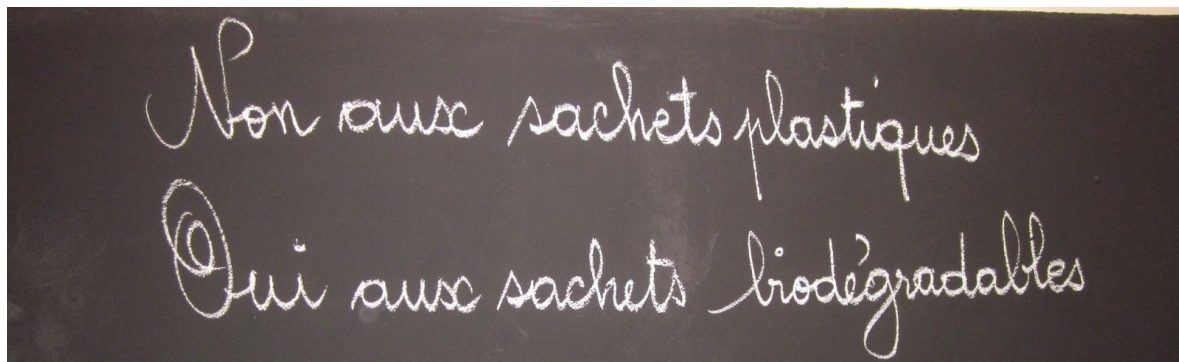 Non aux sachets plastiques
Oui aux sachets biodégradables